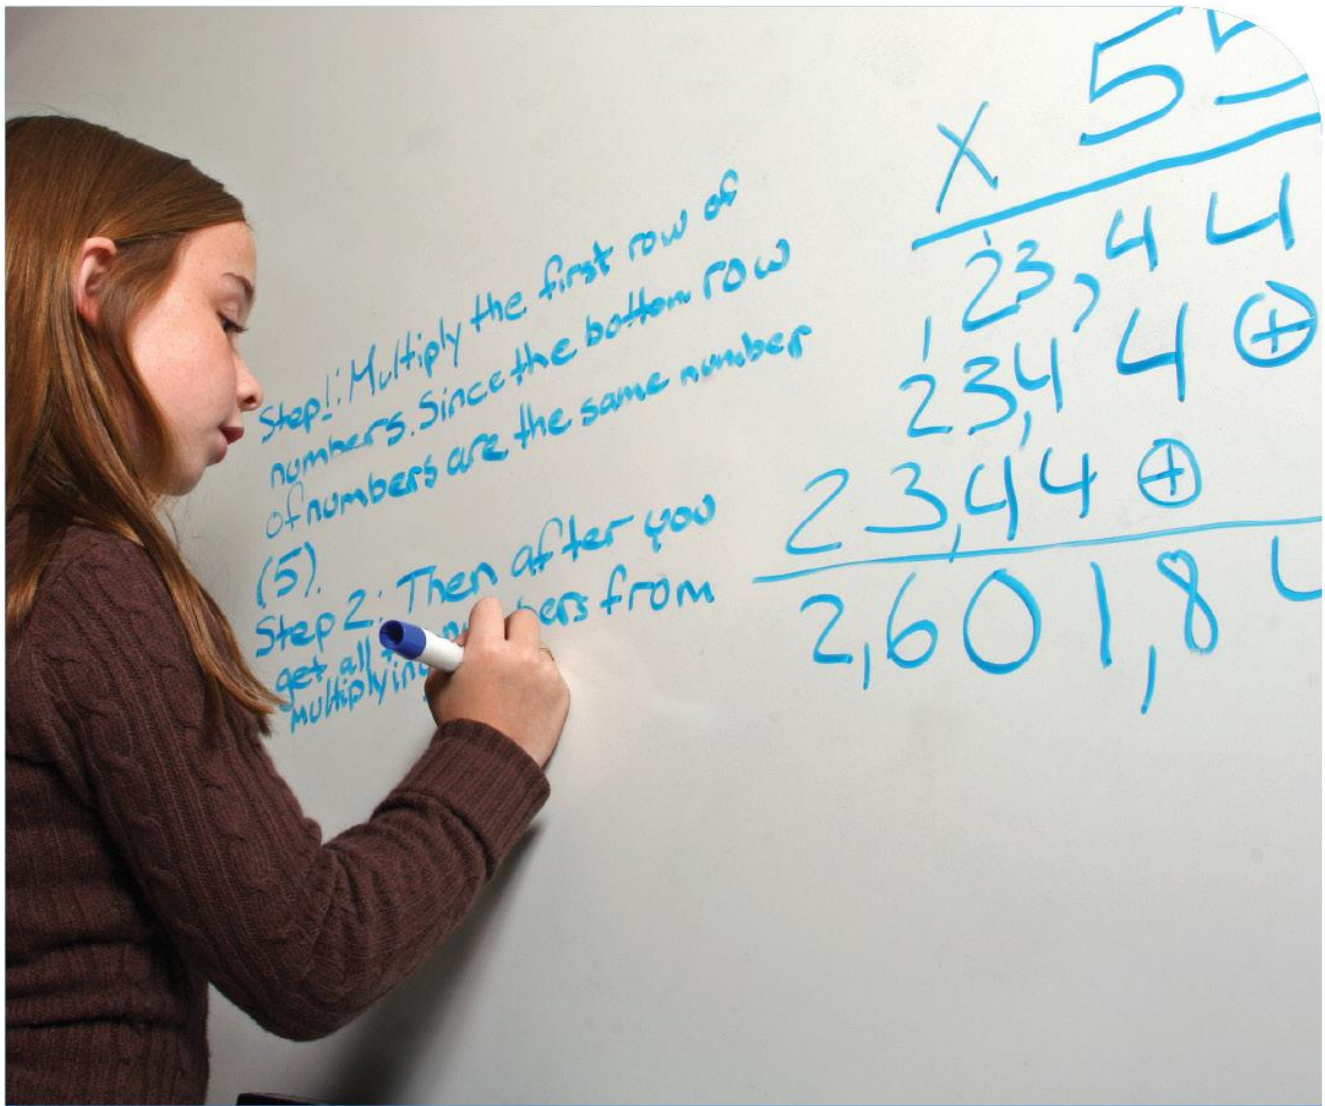 Step 1: Multiply the first row of
numbers. Since the bottom row
of numbers are the same number
(5).
Step 2: Then after you
get all from
multiplying
55
X
23,44
23,44 +
23,44 +
2,601,8